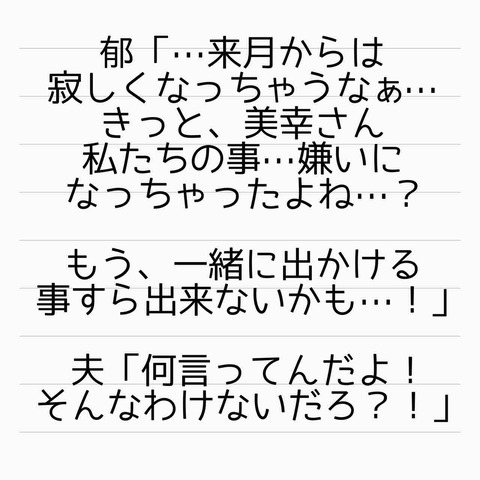 郁「…来月からは
寂しくなっちゃうなぁ…
きっと、美幸さん
私たちの事…嫌いに
なっちゃったよね…？
もう、一緒に出かける
事すら出来ないかも…！」
夫「何言ってんだよ！
そんなわけないだろ？！」